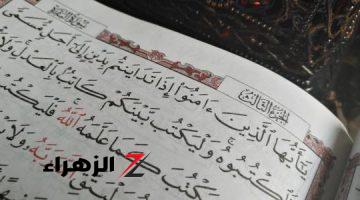 الجزء الثالث
يَٰٓأَيُّهَا ٱلَّذِينَ ءَامَنُوٓا۟ إِذَا تَدَايَنتُم بِدَيْنٍ إِلَىٰٓ أَجَلٍ مُّسَمًّى
فَٱكْتُبُوهُ وَلْيَكْتُب بَّيْنَكُمْ كَاتِبٌۢ بِٱلْعَدْلِ وَلَا
يَكْتُبَ كَمَا عَلَّمَهُ ٱللَّهُ فَلْيَكْتُبْ
الزهراء
وَلْيَتَّقِ ٱللَّهَ رَبَّهُۥ وَلَا